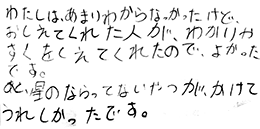 わたしは、あまりわからなかったけど、
おしえてくれた人が、わかりや
すくをしえてくれたので、よかった
です。
星のならってないやつが、かけて
うれしかったです。